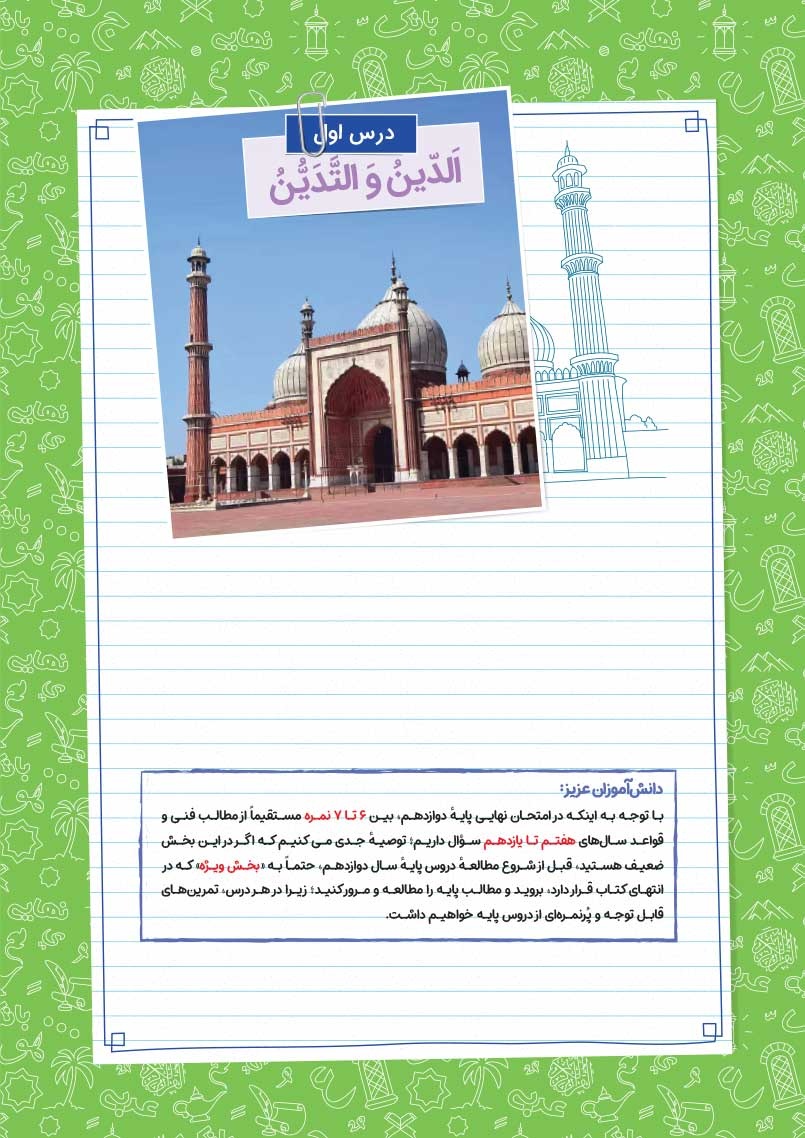 درس اول
اَلدّينُ وَ التَّدَيُّنُ
دانش‌آموزان عزیز:
با توجه به اینکه در امتحان نهایی پایهٔ دوازدهم، بین ۶ تا ۷ نمره مستقیماً از مطالب فنی و
قواعد سال‌های هفتم تا یازدهم سؤال داریم؛ توصیهٔ جدی می کنیم که اگر در این بخش
ضعیف هستید، قبل از شروع مطالعهٔ دروس پایهٔ سال دوازدهم، حتماً به «بخش ویژه» که در
انتهای کتاب قرار دارد، بروید و مطالب پایه را مطالعه و مرور کنید؛ زیرا در هر درس، تمرین‌های
قابل توجه و پُرنمره‌ای از دروس پایه خواهیم داشت.